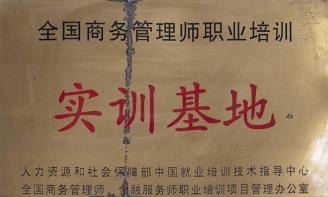 全国商务管理师职业培训
实训基地
人力资源和社会保障部中国就业培训技术指导中心
全国商务管理师、金融服务师职业培训项目管理办公室